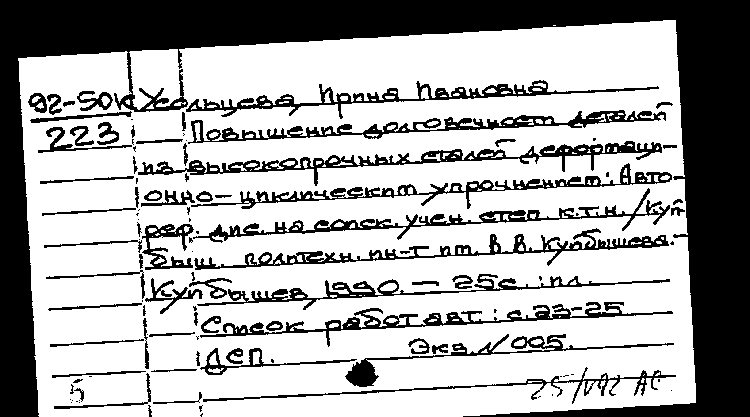 92-50к Жольцева, Ирина Ивановна.
223 Повышение долговечност деталей
из высокопрочных сталей деформаци-
онно-циклическим упрочнением: Авто-
реф. дис. на соиск. учен. степ. к.т.н. / Куй-
быш. политехн. ин-т им. В.В. Куйбышева.-
Куйбышев, 1990. - 25с. : ил.
Список работ авт.: с.23-25
ДСП. Экз. № 005.
5